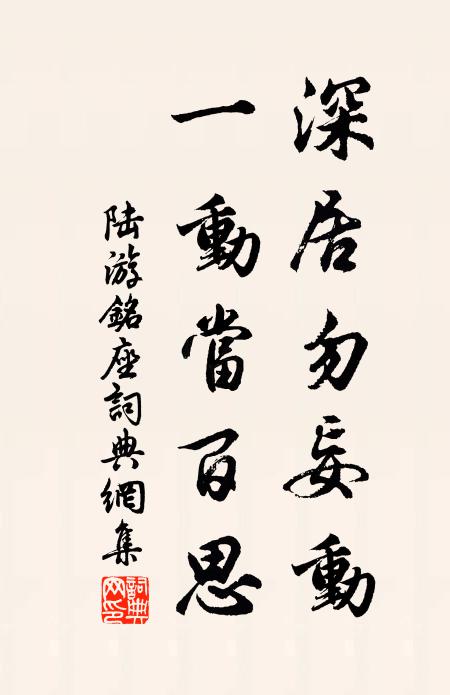 深居勿妄動
一動當百思
陸游銘座詞典網集
詞典網印